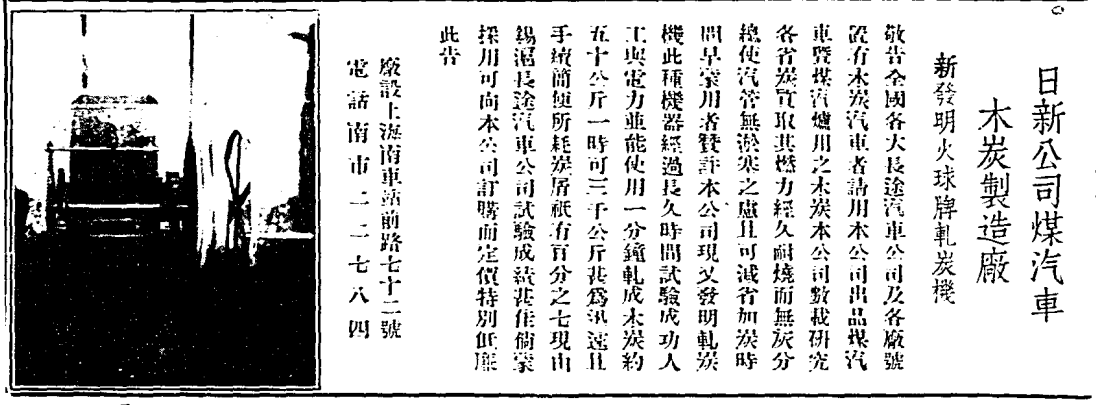 日新公司煤汽車
木炭製造廠
新發明火球牌軋炭機
敬告全國各大長途汽車公司及各廠號
置有木炭汽車者請用本公司出品煤汽
車暨煤汽爐用之木炭本公司數載研究
各省炭質取其燃力經久耐燒而無灰分
總使汽管無淤塞之慮且可減省加炭時
間早蒙用者贊許本公司現又發明軋炭
機此種機器經過長久時間試驗成功人
工與電力並能使用一分鐘軋成木炭約
五十公斤一時可三千公斤甚為迅速且
手續簡便所耗炭屑祇有百分之七現由
錫滬長途汽車公司試驗成績甚佳倘蒙
採用可向本公司訂購而定價特別低廉
此告
廠設上海南車站前路七十二號
電話南市二二七八四